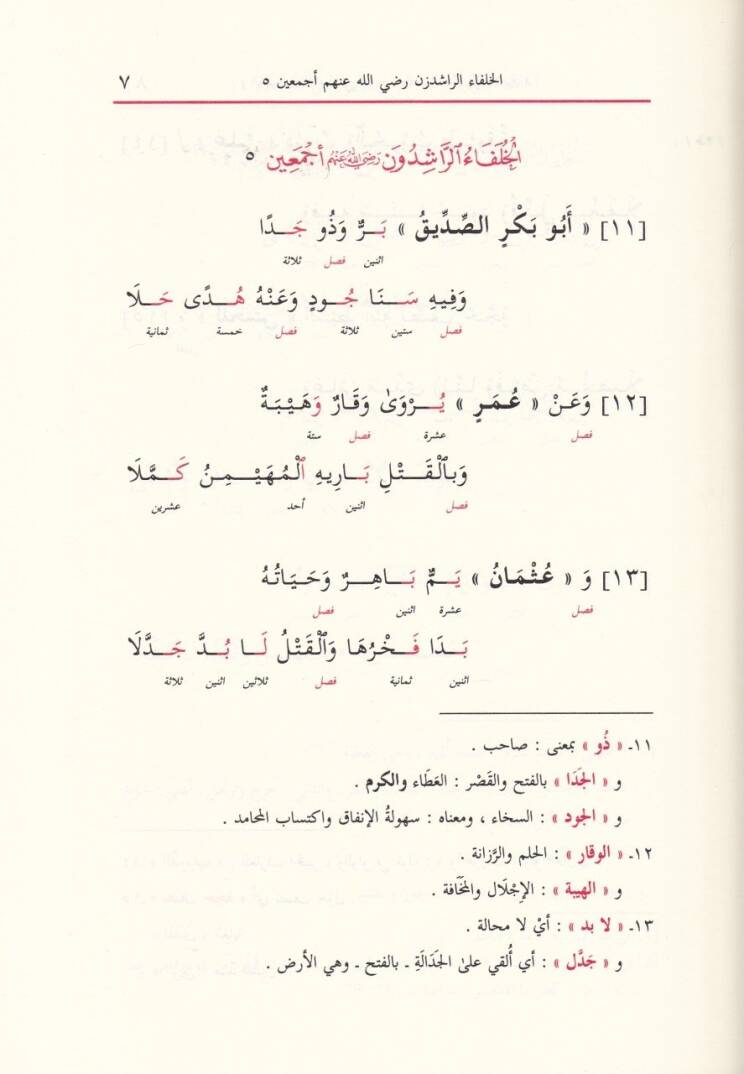 الخلفاء الراشدزن رضي الله عنهم أجمعين ٥ ٧
الخُلَفَاءُ ٱلرَّاشِدُونَ رَضِيَ اللهُ عَنْهُم أَجْمَعِين ٥
[١١] « أَبُو بَكْرٍ الصِّدِّيقُ » بَـرٌّ وَذُو جَـدًا
اثنين فصل ثلاثة
وَفِيهِ سَـنَا جُـودٍ وَعَنْهُ هُـدًى حَـلَا
فصل ستين ثلاثة فصل خمسة ثمانية
[١٢] وَعَنْ « عُمَرٍ » يُـرْوَىٰ وَقَارٌ وَهَيْبَةٌ
فصل عشرة فصل ستة
وَبِٱلْقَتْلِ بَـارِيهِ ٱلْمُهَيْـمِنُ كَـمَّلَا
فصل اثنين أحد عشرين
[١٣] وَ « عُثْمَانُ » يَـمٌّ بَـاهِـرٌ وَحَيَاتُهُ
فصل عشرة اثنين فصل
بَـدَا فَـخْرُهَا وَٱلْقَتْلُ لَـا بُـدَّ جَـدَّلَا
اثنين ثمانية فصل ثلاثين اثنين ثلاثة
١١ـ « ذُو » بمعنى : صاحب .
و « الجَدَا » بالفتح والقَصْر : العَطَاء والكرم .
و « الجود » : السخاء ، ومعناه : سهولةُ الإنفاق واكتساب المحامد .
١٢ـ « الوقار » : الحلم والرَّزانة .
و « الهيبة » : الإِجْلَال والمَخَافة .
١٣ـ « لا بد » : أيْ لا محالة .
و « جَدَّل » : أي أُلقي علىٰ الجَدَالَةِ ـ بالفتح ـ وهي الأرض .